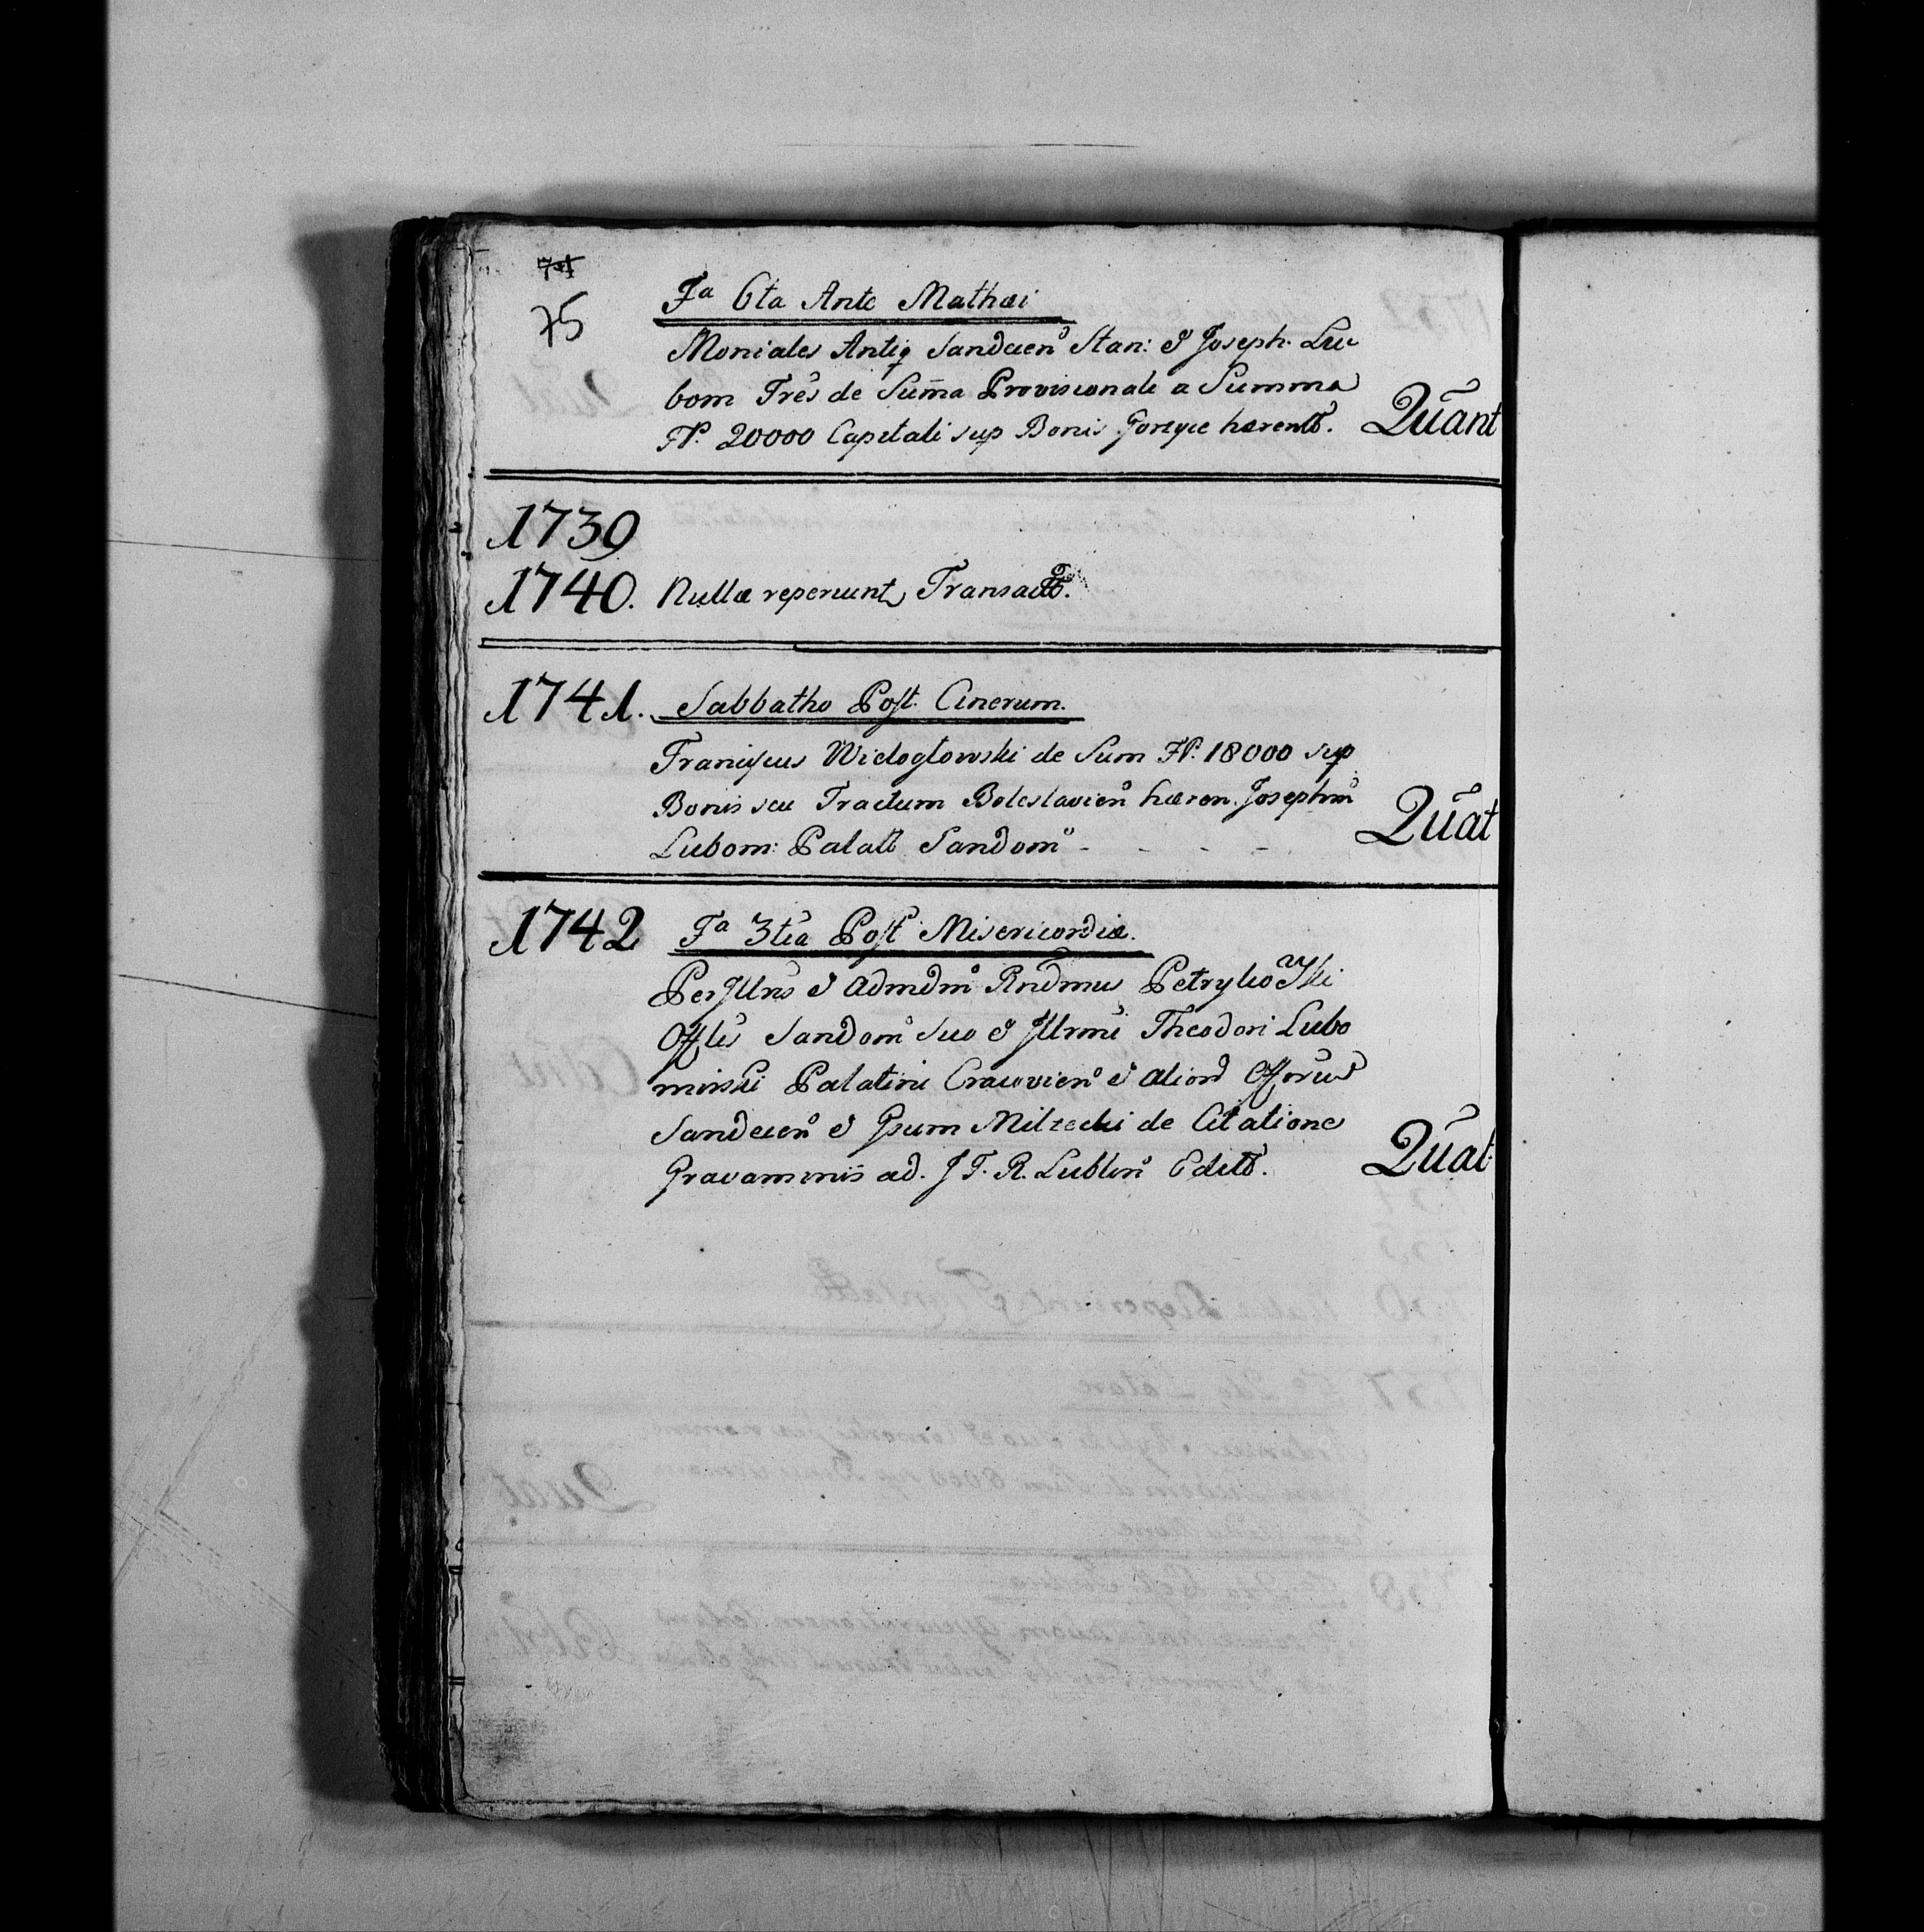 74
75
Fa 6ta Ante Mathæi
Moniales Antiq Sandecen Stan: et Joseph. Lu
bom Fres de Suma Provisionali a Summa
Fl. 20000 Capitali sup Bonis hærent. Quant
1739
1740. Nullæ reperiunt Transact.
1741. Sabbatho Post Cinerum.
Franiscus Wieloglowski de Sum Fl. 18000 sup
Bonis seu Tractum Boleslavien hæren. Josephm
Lubom: Palatt Sandom - - - - Quat
1742 Fa 3tia Post Misericordiæ.
PerJllris et Admdm Rndmus Petrykowski
Offlis Sandom Suo et Jllrmi Theodori Lubo
mirski Palatini Cracovien et aliord Offorus
Sandecen et Gsum Milzecki de Citatione
Gravaminis ad. J T. R. Lublin Editt. Quat